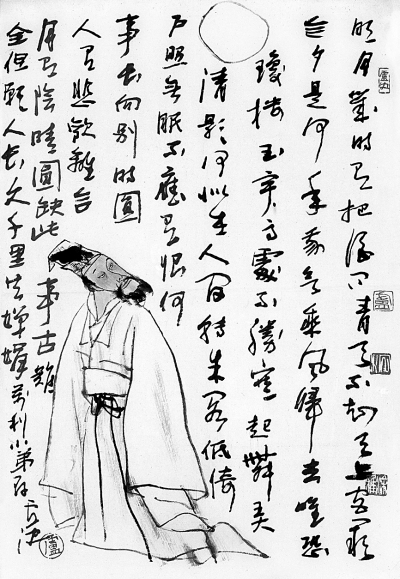 明月幾時有把酒问青天不知天上宫闕
今夕是何年我欲乘风归去唯恐
瓊楼玉宇高處不勝寒起舞弄
清影何似在人间转朱阁低倚
户照无眠不應有恨何
事长向别时圆
人有悲歡離合
月有陰晴圓缺此事古難
全但願人长久千里共婵娟